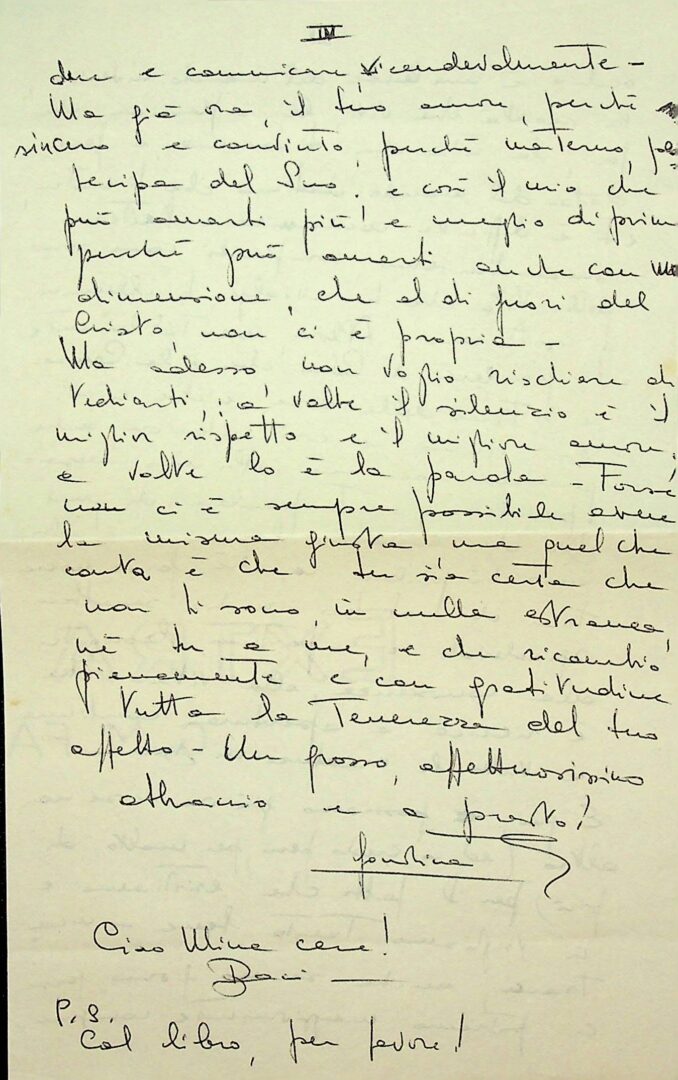 IV
dere e comunicare vicendevolmente -
Ma già ora, il tuo amore, perché
sincero e convinto, perché materno, par=
tecipa del Suo. e così il mio che
può amarti più! e meglio di prima
perché può amarti anche con una
dimensione, che al di fuori del
Cristo, non ci è propria -
Ma adesso non voglio rischiare di
tediarti,: a volte il silenzio è il
miglior rispetto e il migliore amore.
a volte lo è la parola - Forse
non ci è sempre possibile avere
la misura giusta ma quel che
conta è che tu sia certa che
non ti sono, in nulla estranea,
nè tu a me, e che ricambio
pienamente e con gratitudine
tutta la Tenerezza del tuo
affetto - Un grosso, affettuosissimo
abbraccio e a presto!
Faustina
Ciao Mina cara!
Baci
P.S.
Col libro, per favore!